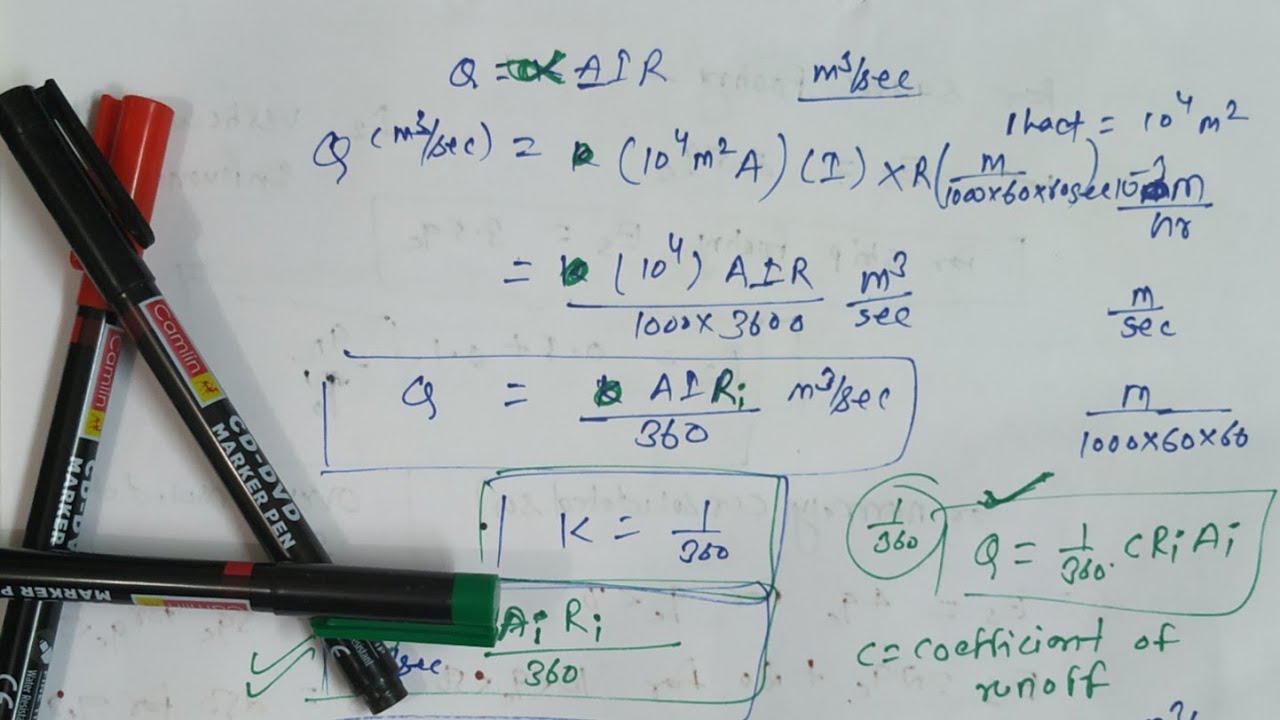 Q = AIR m³/sec
1 hact = 10⁴ m²
Q (m³/sec) = k (10⁴m² A) (I) × R (m/1000×60×60sec) 10⁻³m/hr
= k (10⁴) AIR / 1000×3600 m³/sec
m/sec
Q = k AIRi / 360 m³/sec
m / 1000×60×60
K = 1/360
1/360
Q = 1/360. CRiAi
AiRi / 360
/sec
C = coefficient of
runoff
Camlin
CD-DVD
MARKER PEN
Camlin
CD-DV
MARKER
MARKER P
CE
CE